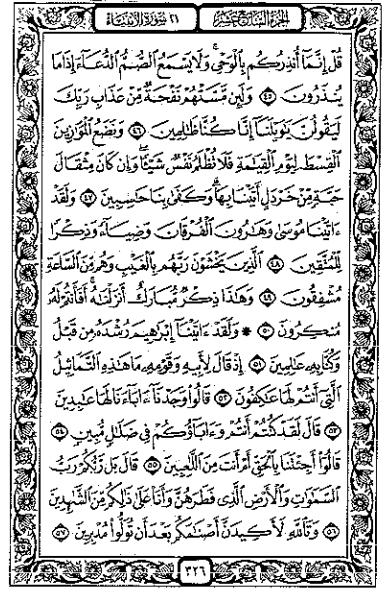 الجزء السابع عشر ٢١ سورة الأنبياء
قُلْ إِنَّمَا أُنذِرُكُم بِالْوَحْيِ وَلَا يَسْمَعُ الصُّمُّ الدُّعَاءَ إِذَا مَا
يُنذَرُونَ ٤٥ وَلَئِن مَّسَّتْهُمْ نَفْحَةٌ مِّنْ عَذَابِ رَبِّكَ
لَيَقُولُنَّ يَٰوَيْلَنَا إِنَّا كُنَّا ظَٰلِمِينَ ٤٦ وَنَضَعُ الْمَوَٰزِينَ
الْقِسْطَ لِيَوْمِ الْقِيَٰمَةِ فَلَا تُظْلَمُ نَفْسٌ شَيْئًا وَإِن كَانَ مِثْقَالَ
حَبَّةٍ مِّنْ خَرْدَلٍ أَتَيْنَا بِهَا وَكَفَىٰ بِنَا حَٰسِبِينَ ٤٧ وَلَقَدْ
ءَاتَيْنَا مُوسَىٰ وَهَٰرُونَ الْفُرْقَانَ وَضِيَاءً وَذِكْرًا
لِّلْمُتَّقِينَ ٤٨ الَّذِينَ يَخْشَوْنَ رَبَّهُم بِالْغَيْبِ وَهُم مِّنَ السَّاعَةِ
مُشْفِقُونَ ٤٩ وَهَٰذَا ذِكْرٌ مُّبَارَكٌ أَنزَلْنَٰهُ أَفَأَنتُمْ لَهُ
مُنكِرُونَ ٥٠ ۞ وَلَقَدْ ءَاتَيْنَا إِبْرَٰهِيمَ رُشْدَهُ مِن قَبْلُ
وَكُنَّا بِهِ عَٰلِمِينَ ٥١ إِذْ قَالَ لِأَبِيهِ وَقَوْمِهِ مَا هَٰذِهِ التَّمَاثِيلُ
الَّتِي أَنتُمْ لَهَا عَٰكِفُونَ ٥٢ قَالُوا وَجَدْنَا ءَابَاءَنَا لَهَا عَٰبِدِينَ
٥٣ قَالَ لَقَدْ كُنتُمْ أَنتُمْ وَءَابَاؤُكُمْ فِي ضَلَٰلٍ مُّبِينٍ ٥٤
قَالُوا أَجِئْتَنَا بِالْحَقِّ أَمْ أَنتَ مِنَ اللَّٰعِبِينَ ٥٥ قَالَ بَل رَّبُّكُمْ رَبُّ
السَّمَٰوَٰتِ وَالْأَرْضِ الَّذِي فَطَرَهُنَّ وَأَنَا عَلَىٰ ذَٰلِكُم مِّنَ الشَّٰهِدِينَ
٥٦ وَتَاللَّهِ لَأَكِيدَنَّ أَصْنَٰمَكُم بَعْدَ أَن تُوَلُّوا مُدْبِرِينَ ٥٧
٣٢٦